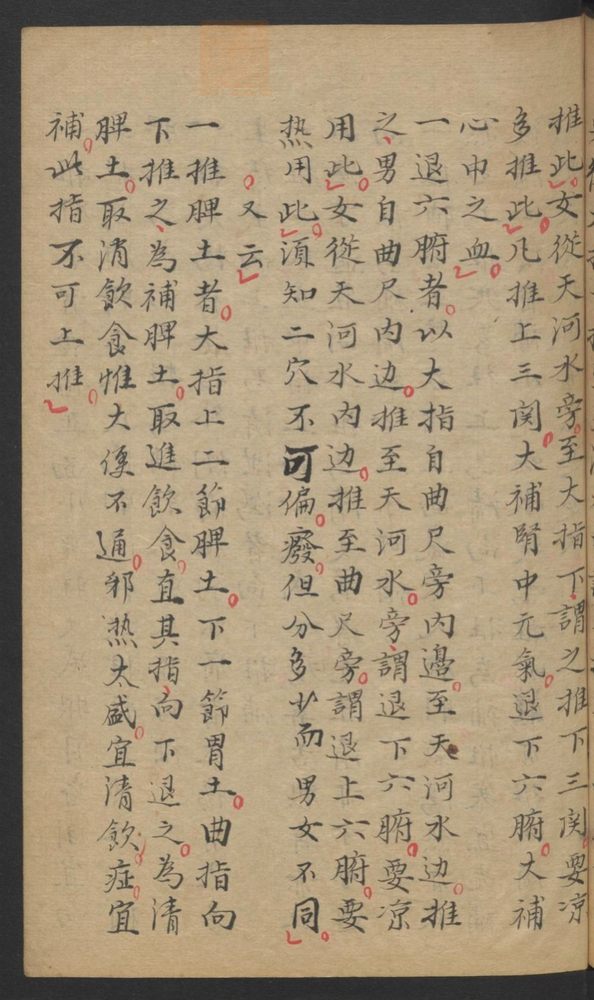 推此女從天河水旁至大指下謂之推下三関要凉
多推此凡推上三関大補腎中元氣退下六腑大補
心中之血
一退六腑者以大指自曲尺旁内邊至天河水边推
之男自曲尺内边推至天河水旁謂退下六腑要凉
用此女從天河水内边推至曲尺旁謂退上六腑要
热用此須知二穴不可偏癈但分多少而男女不同
又云
一推脾土者大指上二節脾土下一節胃土曲指向
下推之為補脾土取進飲食直其指向下退之為清
脾土取消飲食惟大便不通邪熱太盛宜清飲症宜
補此指不可上推